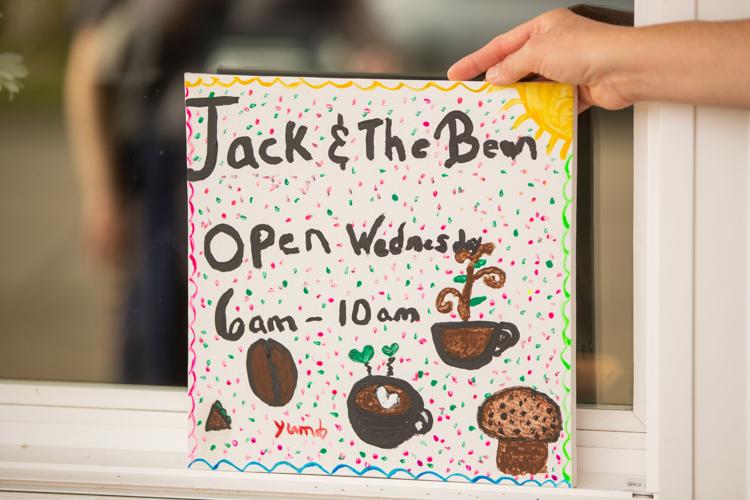 Jack & The Bean
Open Wednesday
6am - 10am
yum